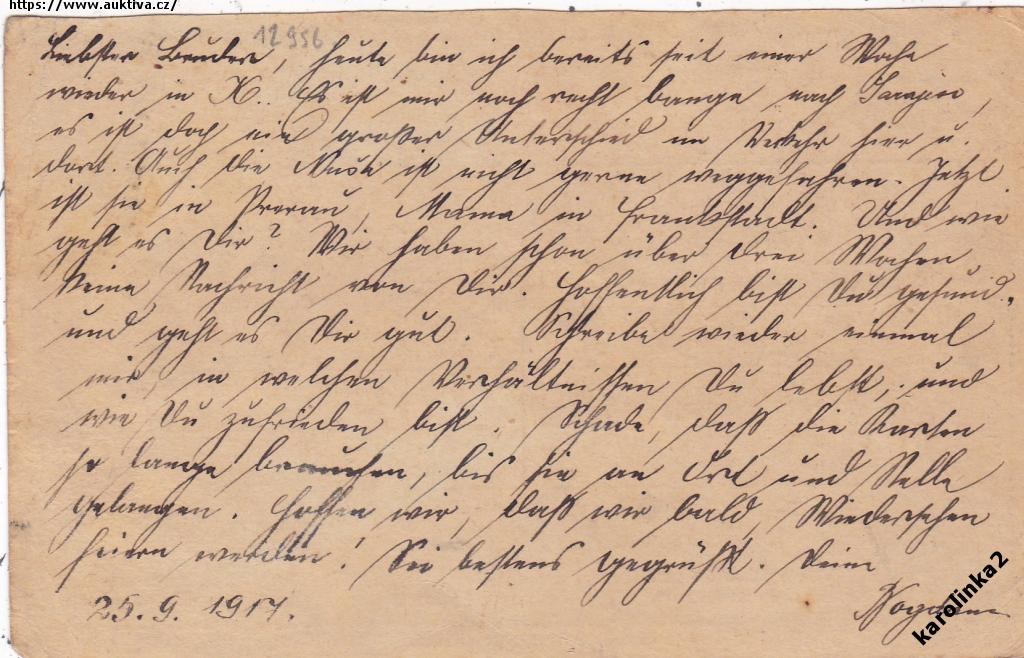 https://www.auktiva.cz/
12956
Liebster Bruder, heute bin ich bereits seit einer Woche
wieder in K.. Es ist mir noch recht bange nach Sarajevo,
es ist doch ein großer Unterschied im Verkehr hier u.
dort. Auch die ist nicht gerne weggefahren. Jetzt
ist sie in Prerau, Mama in Frankstadt. Und wie
geht es Dir? Wir haben schon über drei Wochen
keine Nachricht von Dir. Hoffentlich bist Du gesund
und geht es Dir gut. Schreibe wieder einmal
mir, in welchen Verhältnissen Du lebst, und
wie Du zufrieden bist. Schade, daß die Karten
so lange brauchen, bis sie an Ort und Stelle
gelangen. Hoffen wir, daß wir bald Wiedersehen
feiern werden! Sei bestens gegrüßt. Deine
25.9.1917.
karolinka2